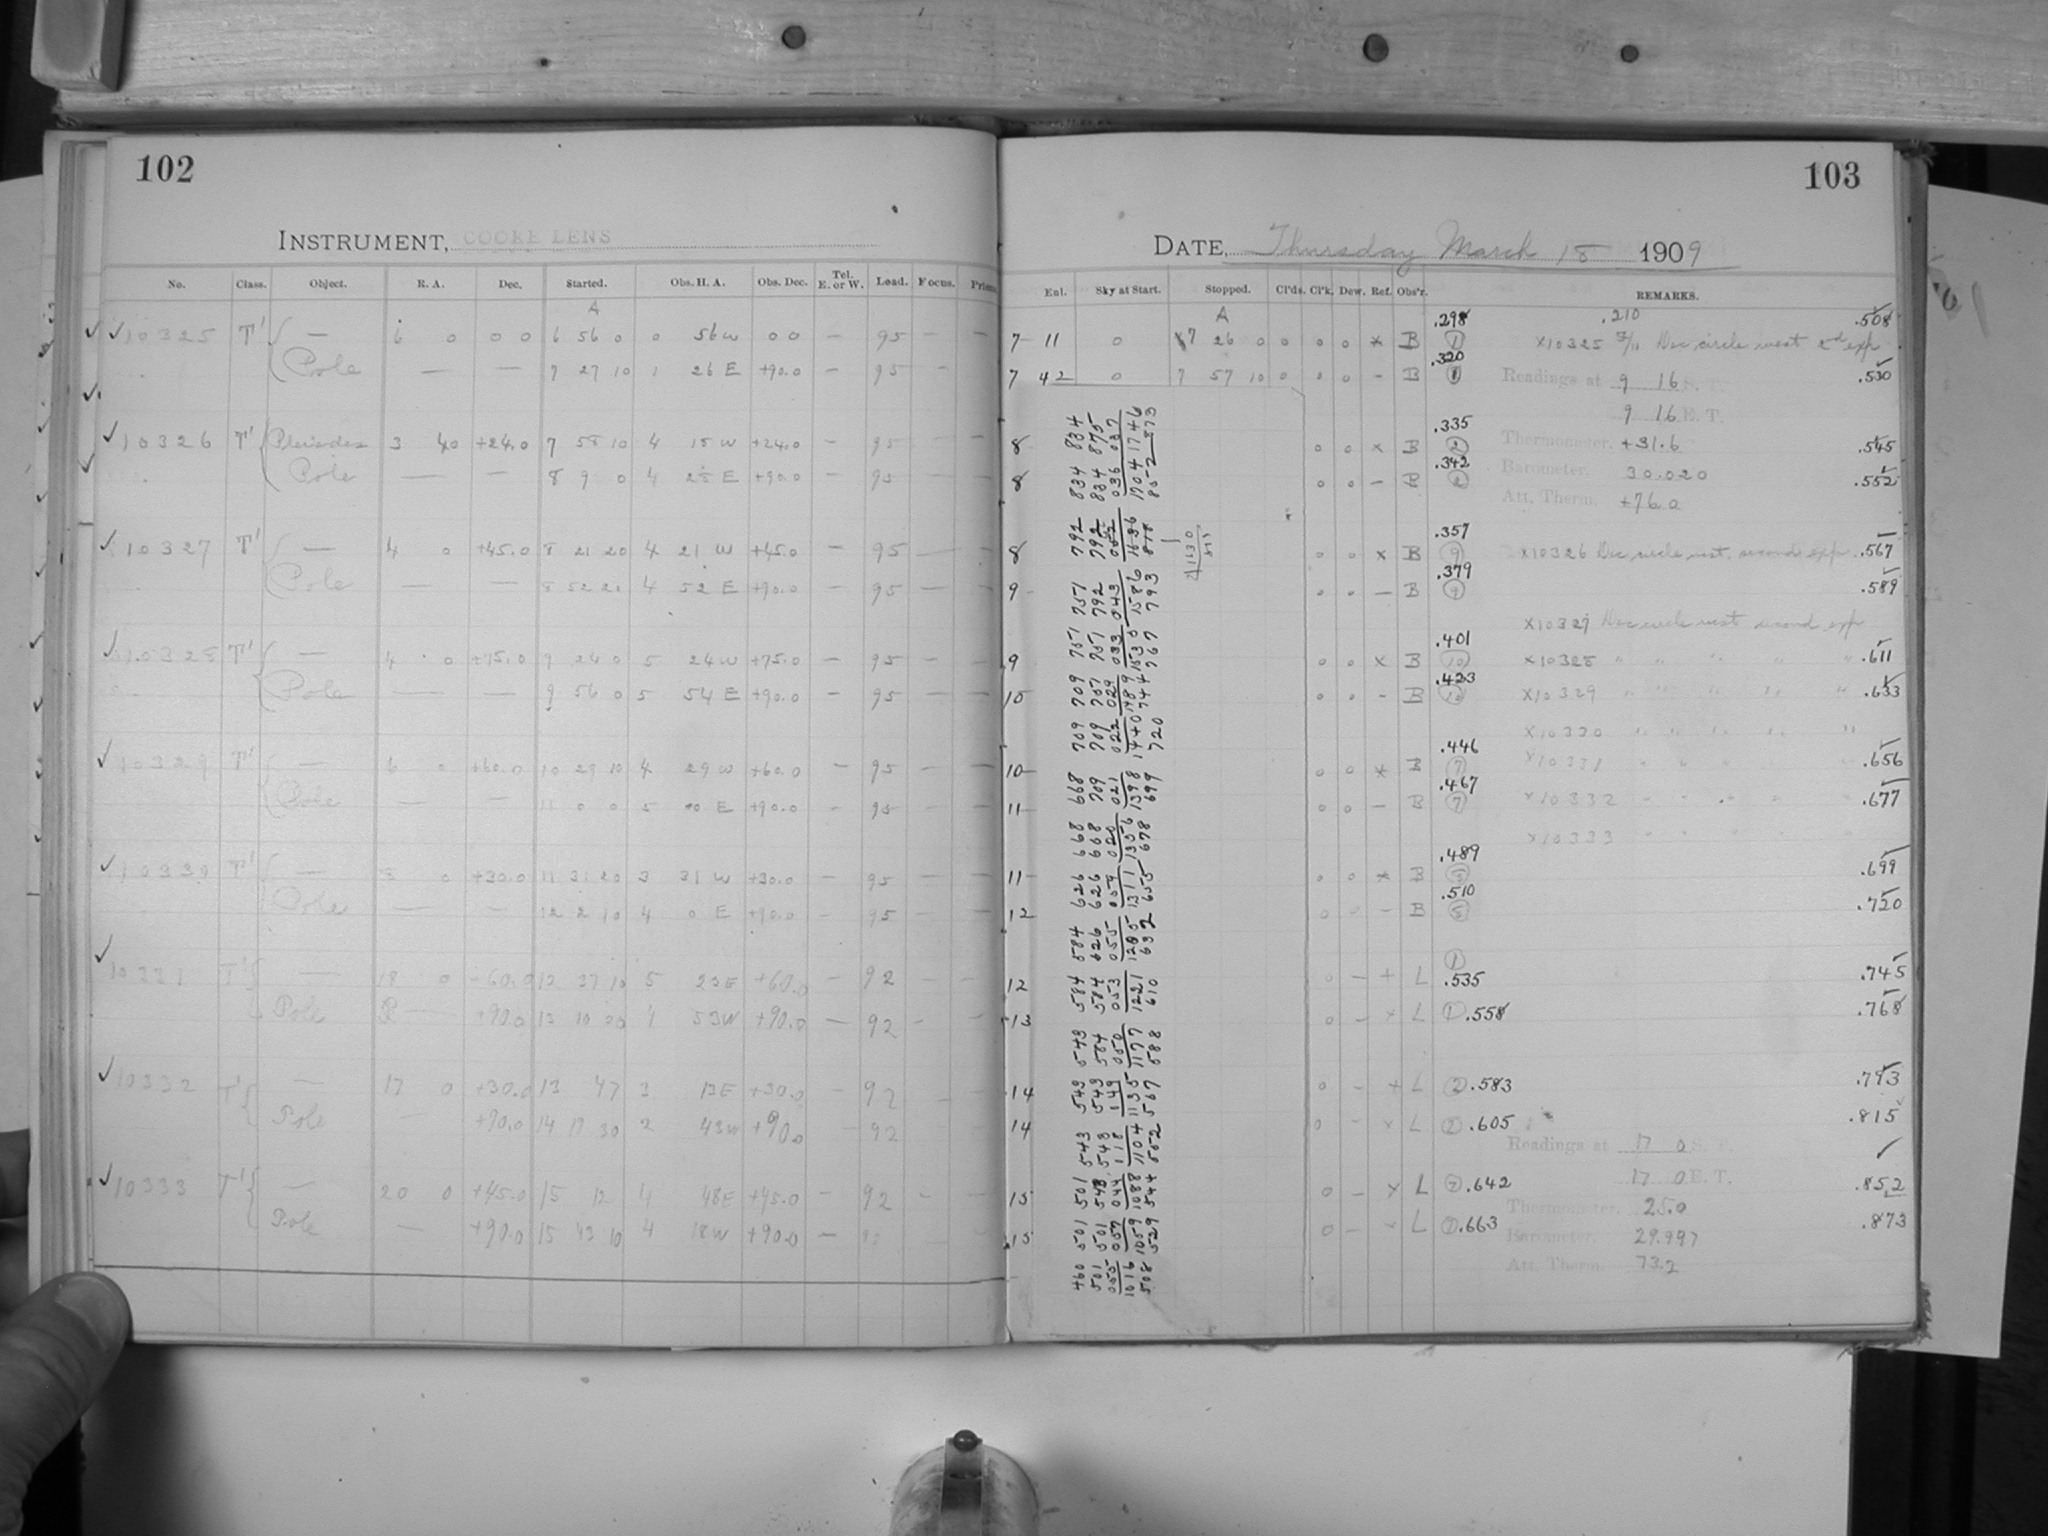 102
INSTRUMENT, COOKE LENS
No. Class. Object. R. A. Dec. Started. Obs. H. A. Obs. Dec. Tel. E. or W. Load. Focus. Prism
A
10325 T' — 6 0 0 0 6 56 0 0 56 W 0 0 — 95 — —
Pole — — 7 27 10 1 26 E +90.0 — 95 — —
10326 T' Pleiades 3 40 +24.0 7 58 10 4 18 W +24.0 — 95 — —
Pole — — 8 9 0 4 28 E +90.0 — 95 — —
10327 T' — 4 0 +45.0 8 21 20 4 21 W +45.0 — 95 — —
Pole — — 8 52 20 4 52 E +90.0 — 95 — —
10328 T' — 4 0 +75.0 9 24 0 5 24 W +75.0 — 95 — —
Pole — 9 56 0 5 54 E +90.0 — 95 — —
10329 T' — 6 0 +60.0 10 29 10 4 29 W +60.0 — 95 — —
Pole — — 11 0 0 5 00 E +90.0 — 95 — —
10330 T' — 8 0 +30.0 11 31 20 3 31 W +30.0 — 95 — —
Pole — — 12 2 10 4 0 E +90.0 — 95 — —
10331 T' — 18 0 +60.0 12 37 10 5 23 E +60.0 — 92 — —
Pole — +90.0 13 10 20 4 53 W +90.0 — 92 — —
10332 T' — 17 0 +30.0 13 47 3 13 E +30.0 — 92 — —
Pole +90.0 14 17 30 2 43 W +90.0 — 92 — —
10333 T' — 20 0 +45.0 15 12 4 48 E +45.0 — 92 — —
Pole — +90.0 15 43 10 4 18 W +90.0 — 92 — —
103
DATE, Thursday March 18 1909
Exl. Sky at Start. Stopped. Cl'ds. Cl'k. Dew. Ref. Obs'r. REMARKS.
A .298 .210 .508
7 11 0 7 26 0 0 0 0 x B 1 x10325 Dec circle west 2d exp
.320
7 42 0 7 57 10 0 0 0 - B 1 Readings at 9 16 S. T. .530
9 16 E. T.
.335
8 0 0 x B 2 Thermometer. +31.6 .545
.342
8 0 0 - B 2 Barometer. 30.020 .552
Att. Therm. +76.0
.357
8 0 0 x B 9 x10326 Dec circle west, second exp .567
.379
9 0 0 — B 9 .589
x10327 Dec circle west second exp
.401
9 0 0 x B 10 x10328 " " " " " .611
.423
10 0 0 - B 10 x10329 " " " " " .633
x10330 " " " " "
.446
10 0 0 x B 7 x10331 .656
.467
11 0 0 — B 7 x10332 .677
x10333
.489
11 0 0 x B 5 .699
.510
12 0 0 - B 5 .720
12 0 — + L 1 .535 .745
13 0 — x L 1 .558 .768
14 0 - + L 2 .583 .793
14 0 - x L 2 .605 .815
Readings at 17 0 S. T.
17 0 E. T.
15 0 — x L 7 .642 .852
Thermometer. 25.0
15 0 — x L 7 .663 .873
Barometer. 29.997
Att. Therm. 73.2
834 834 792 751 751 709 709 668 668 626 584 584 543 543 543 501 501 460
834 875 792 792 751 751 709 709 668 626 626 584 584 543 543 543 501 501
1704 1746 1586 1530 1489 1440 1398 1356 1311 1221 1177 1135 1104 1088 1059 1016
852 873 793 767 744 720 699 678 655 632 610 588 567 552 544 529 508